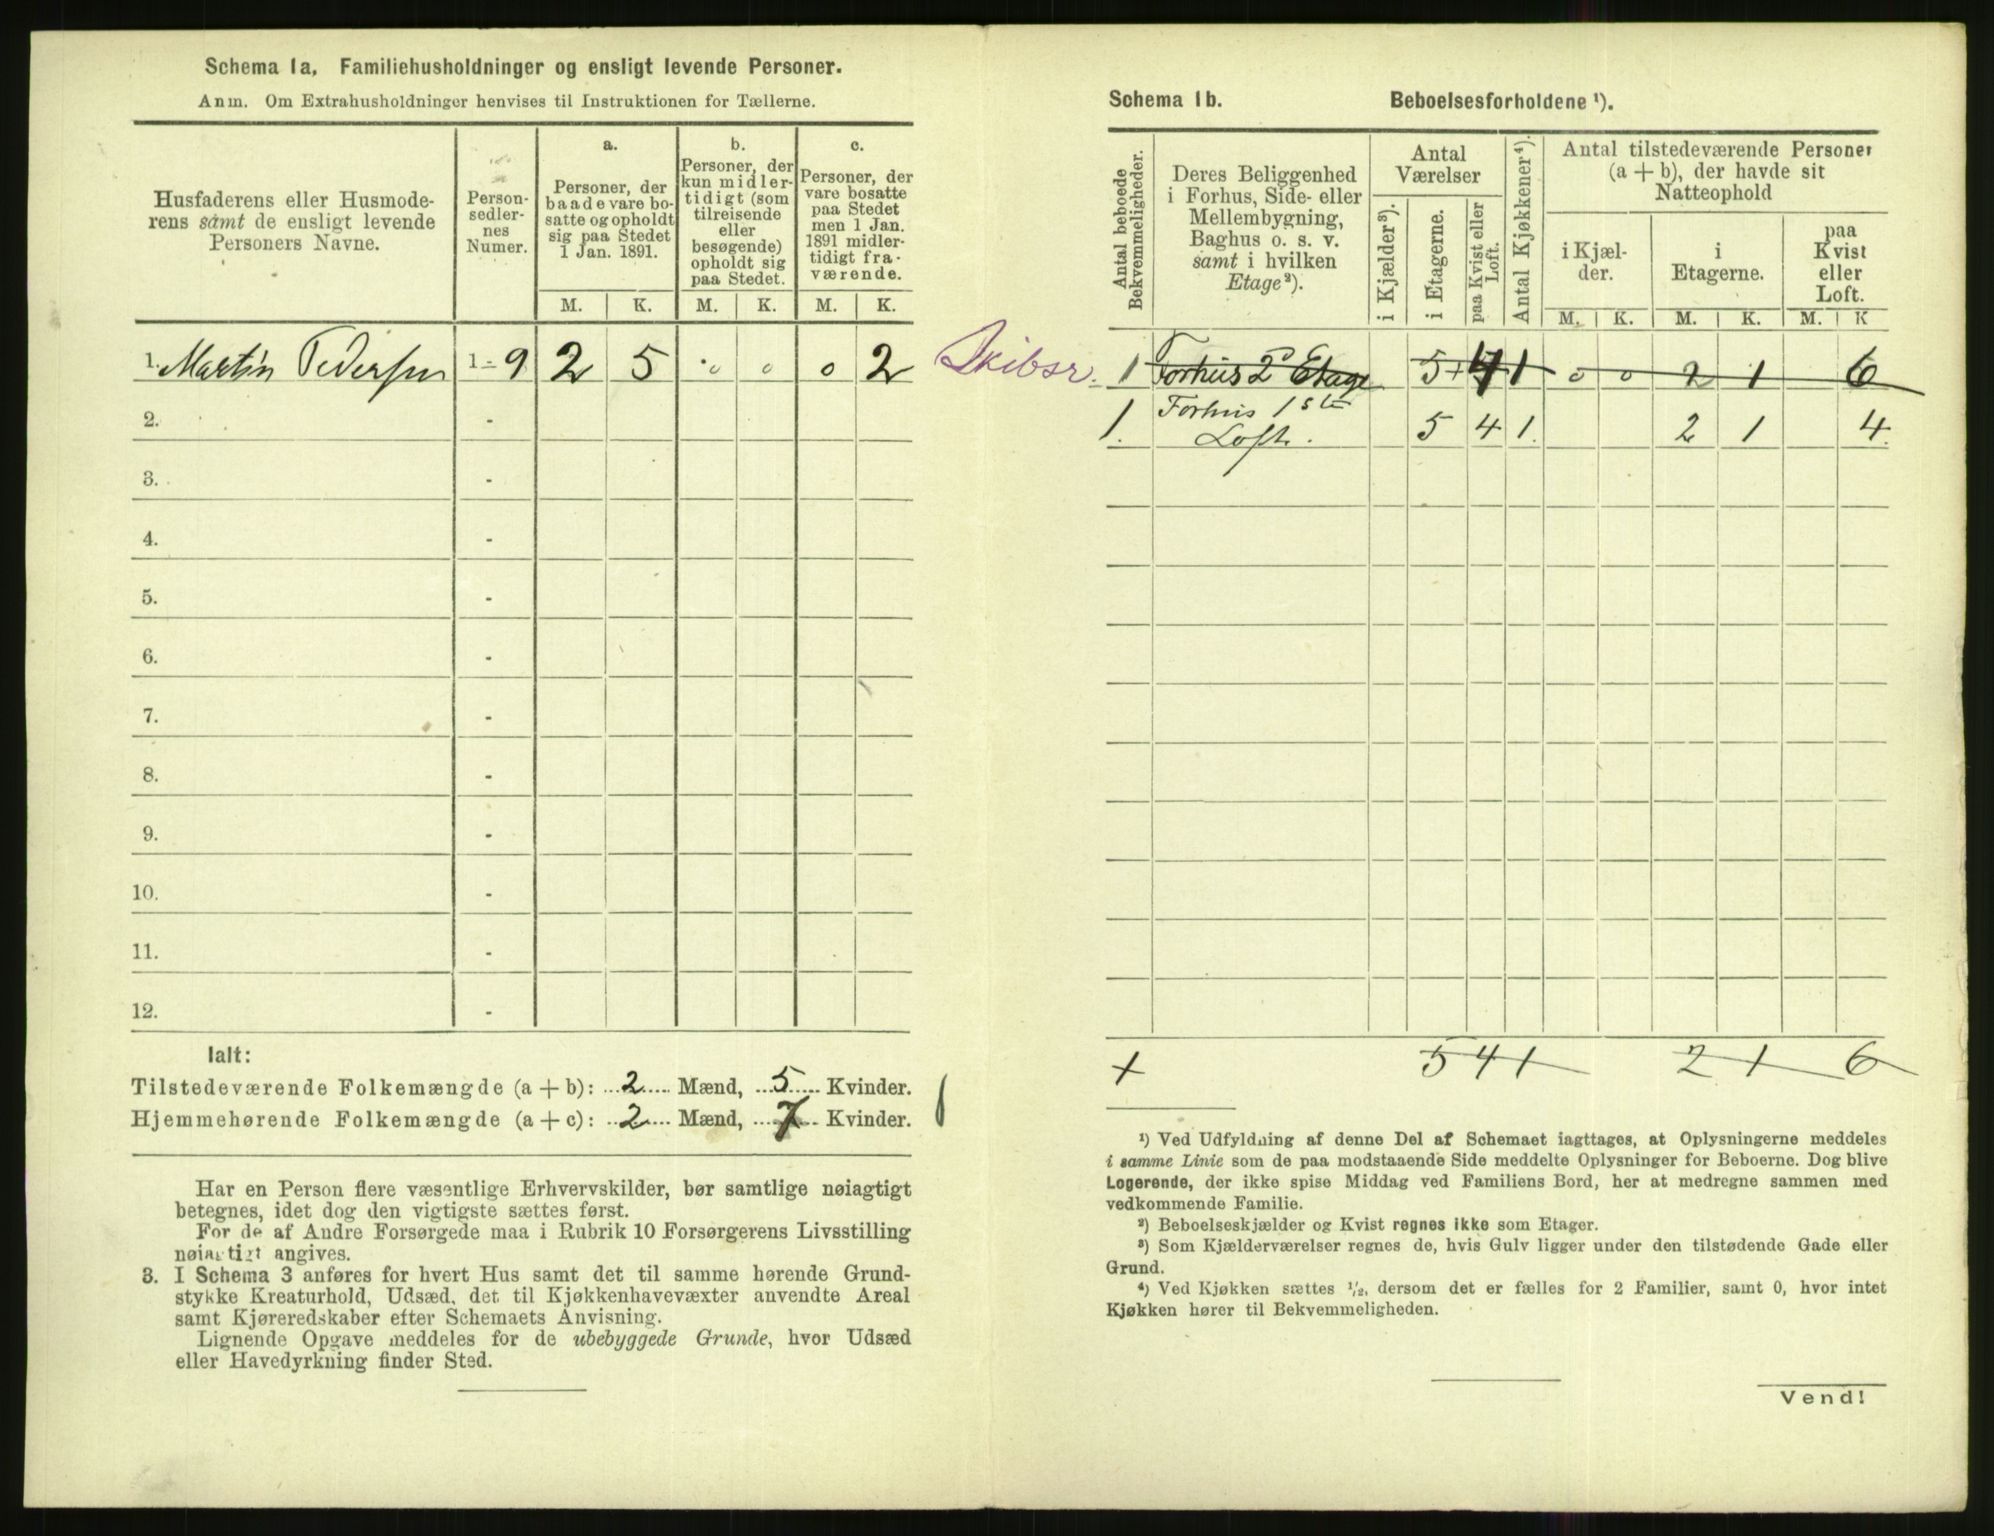 Schema 1a, Familiehusholdninger og ensligt levende Personer.
Anm. Om Extrahusholdninger henvises til Instruktionen for Tællerne.
Husfaderens eller Husmoderens samt de ensligt levende Personers Navne.
Personsedlernes Numer.
a.
Personer, der baade vare bosatte og opholdt sig paa Stedet 1 Jan. 1891.
b.
Personer, der kun midlertidigt (som tilreisende eller besøgende) opholdt sig paa Stedet.
c.
Personer, der vare bosatte paa Stedet men 1 Jan. 1891 midlertidigt fraværende.
M. K. M. K. M. K.
1. Martin Pedersen 1-9 2 5 0 0 0 2
2. -
3. -
4. -
5. -
6. -
7. -
8. -
9. -
10. -
11. -
12. -
Ialt:
Tilstedeværende Folkemængde (a + b): 2 Mænd, 5 Kvinder.
Hjemmehørende Folkemængde (a + c): 2 Mænd, 7 Kvinder.
Har en Person flere væsentlige Erhvervskilder, bør samtlige nøiagtigt
betegnes, idet dog den vigtigste sættes først.
For de af Andre Forsørgede maa i Rubrik 10 Forsørgerens Livsstilling
nøiagtigt angives.
3. I Schema 3 anføres for hvert Hus samt det til samme hørende Grund-
stykke Kreaturhold, Udsæd, det til Kjøkkenhavevæxter anvendte Areal
samt Kjøreredskaber efter Schemaets Anvisning.
Lignende Opgave meddeles for de ubebyggede Grunde, hvor Udsæd
eller Havedyrkning finder Sted.
Schema 1b. Beboelsesforholdene ¹).
Antal beboede Bekvemmeligheder.
Deres Beliggenhed i Forhus, Side- eller Mellembygning, Baghus o. s. v. samt i hvilken Etage²).
Antal Værelser
i Kjælder³).
i Etagerne.
paa Kvist eller Loft.
Antal Kjøkkener⁴).
Antal tilstedeværende Personer (a + b), der havde sit Natteophold
i Kjælder.
i Etagerne.
paa Kvist eller Loft.
M. K. M. K. M. K
Skibsr.
1 Forhus 2 Etage 5 + 4 1 0 0 2 1 6
1. Forhus 1ste
Loft. 5 4 1. 2 1 4.
+ 5 4 1 2 1 6
¹) Ved Udfyldning af denne Del af Schemaet iagttages, at Oplysningerne meddeles
i samme Linie som de paa modstaaende Side meddelte Oplysninger for Beboerne. Dog blive
Logerende, der ikke spise Middag ved Familiens Bord, her at medregne sammen med
vedkommende Familie.
²) Beboelseskjælder og Kvist regnes ikke som Etager.
³) Som Kjælderværelser regnes de, hvis Gulv ligger under den tilstødende Gade eller
Grund.
⁴) Ved Kjøkken sættes ¹/₂, dersom det er fælles for 2 Familier, samt 0, hvor intet
Kjøkken hører til Bekvemmeligheden.
Vend!